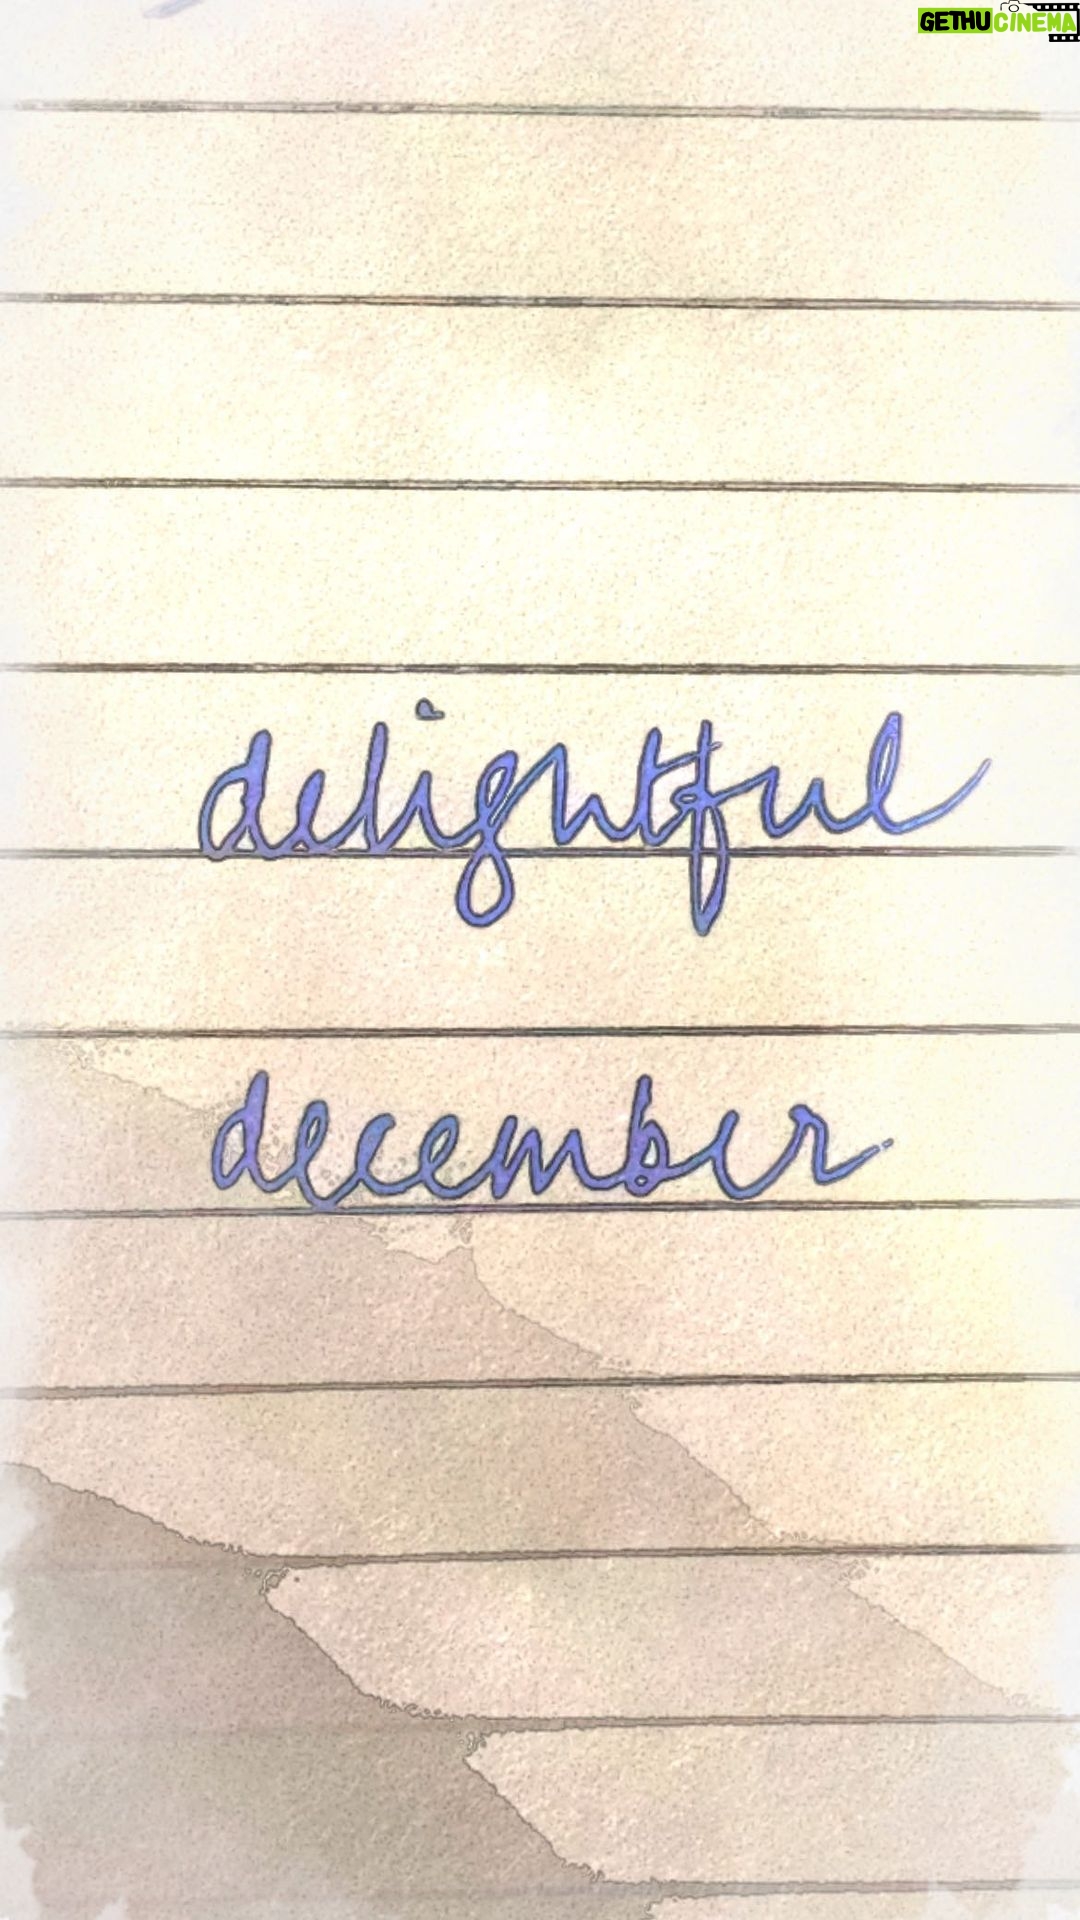 GETHUCINEMA
delightful
december